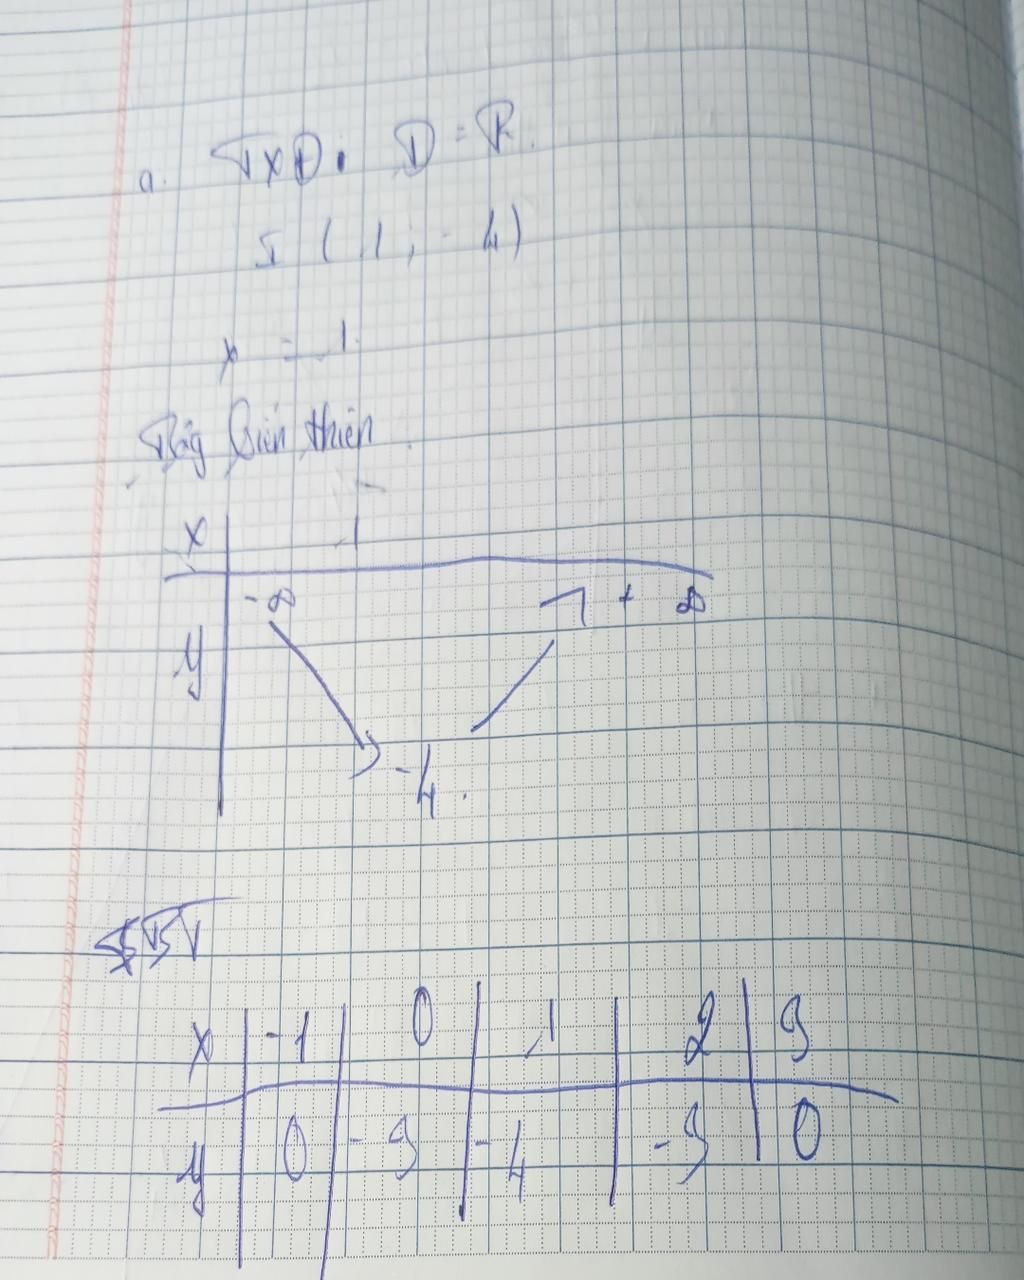 a. TXĐ: D = R.
I ( 1 ; - 4 )
x = 1
Bảng biến thiên
x 1
y -∞ + ∞
-4.
x -1 0 1 2 3
y 0 -3 -4 -3 0